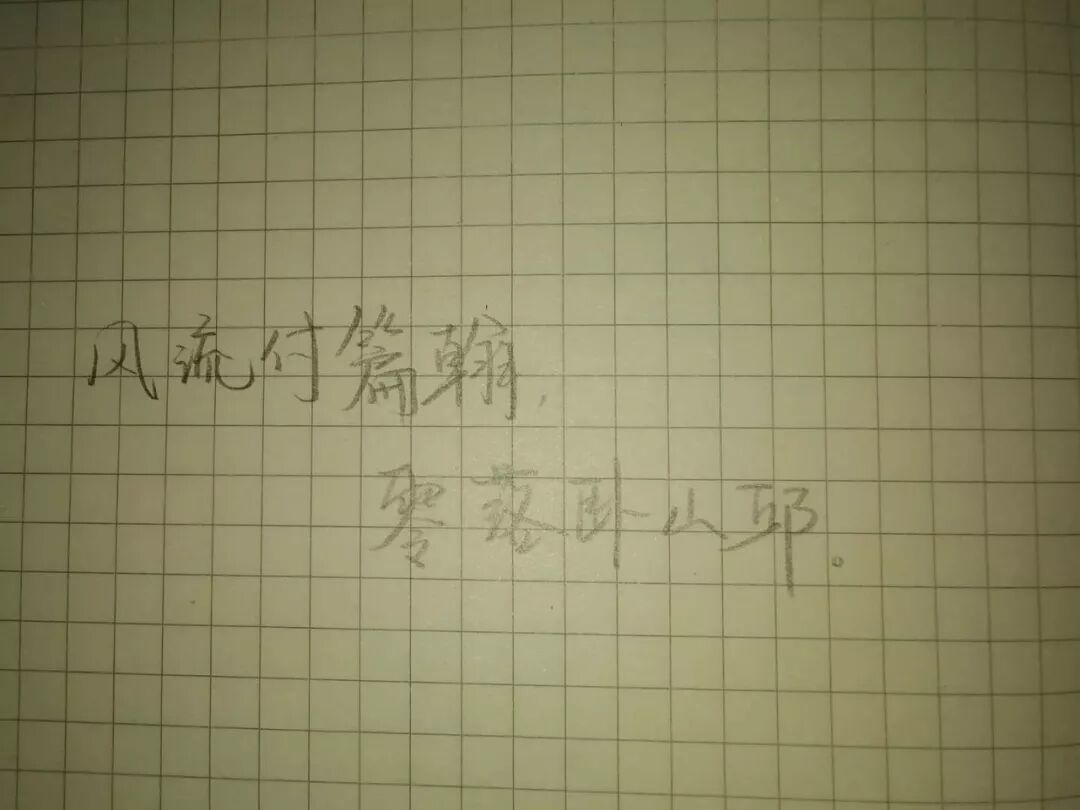 风流付篇翰，
零落卧山邱。